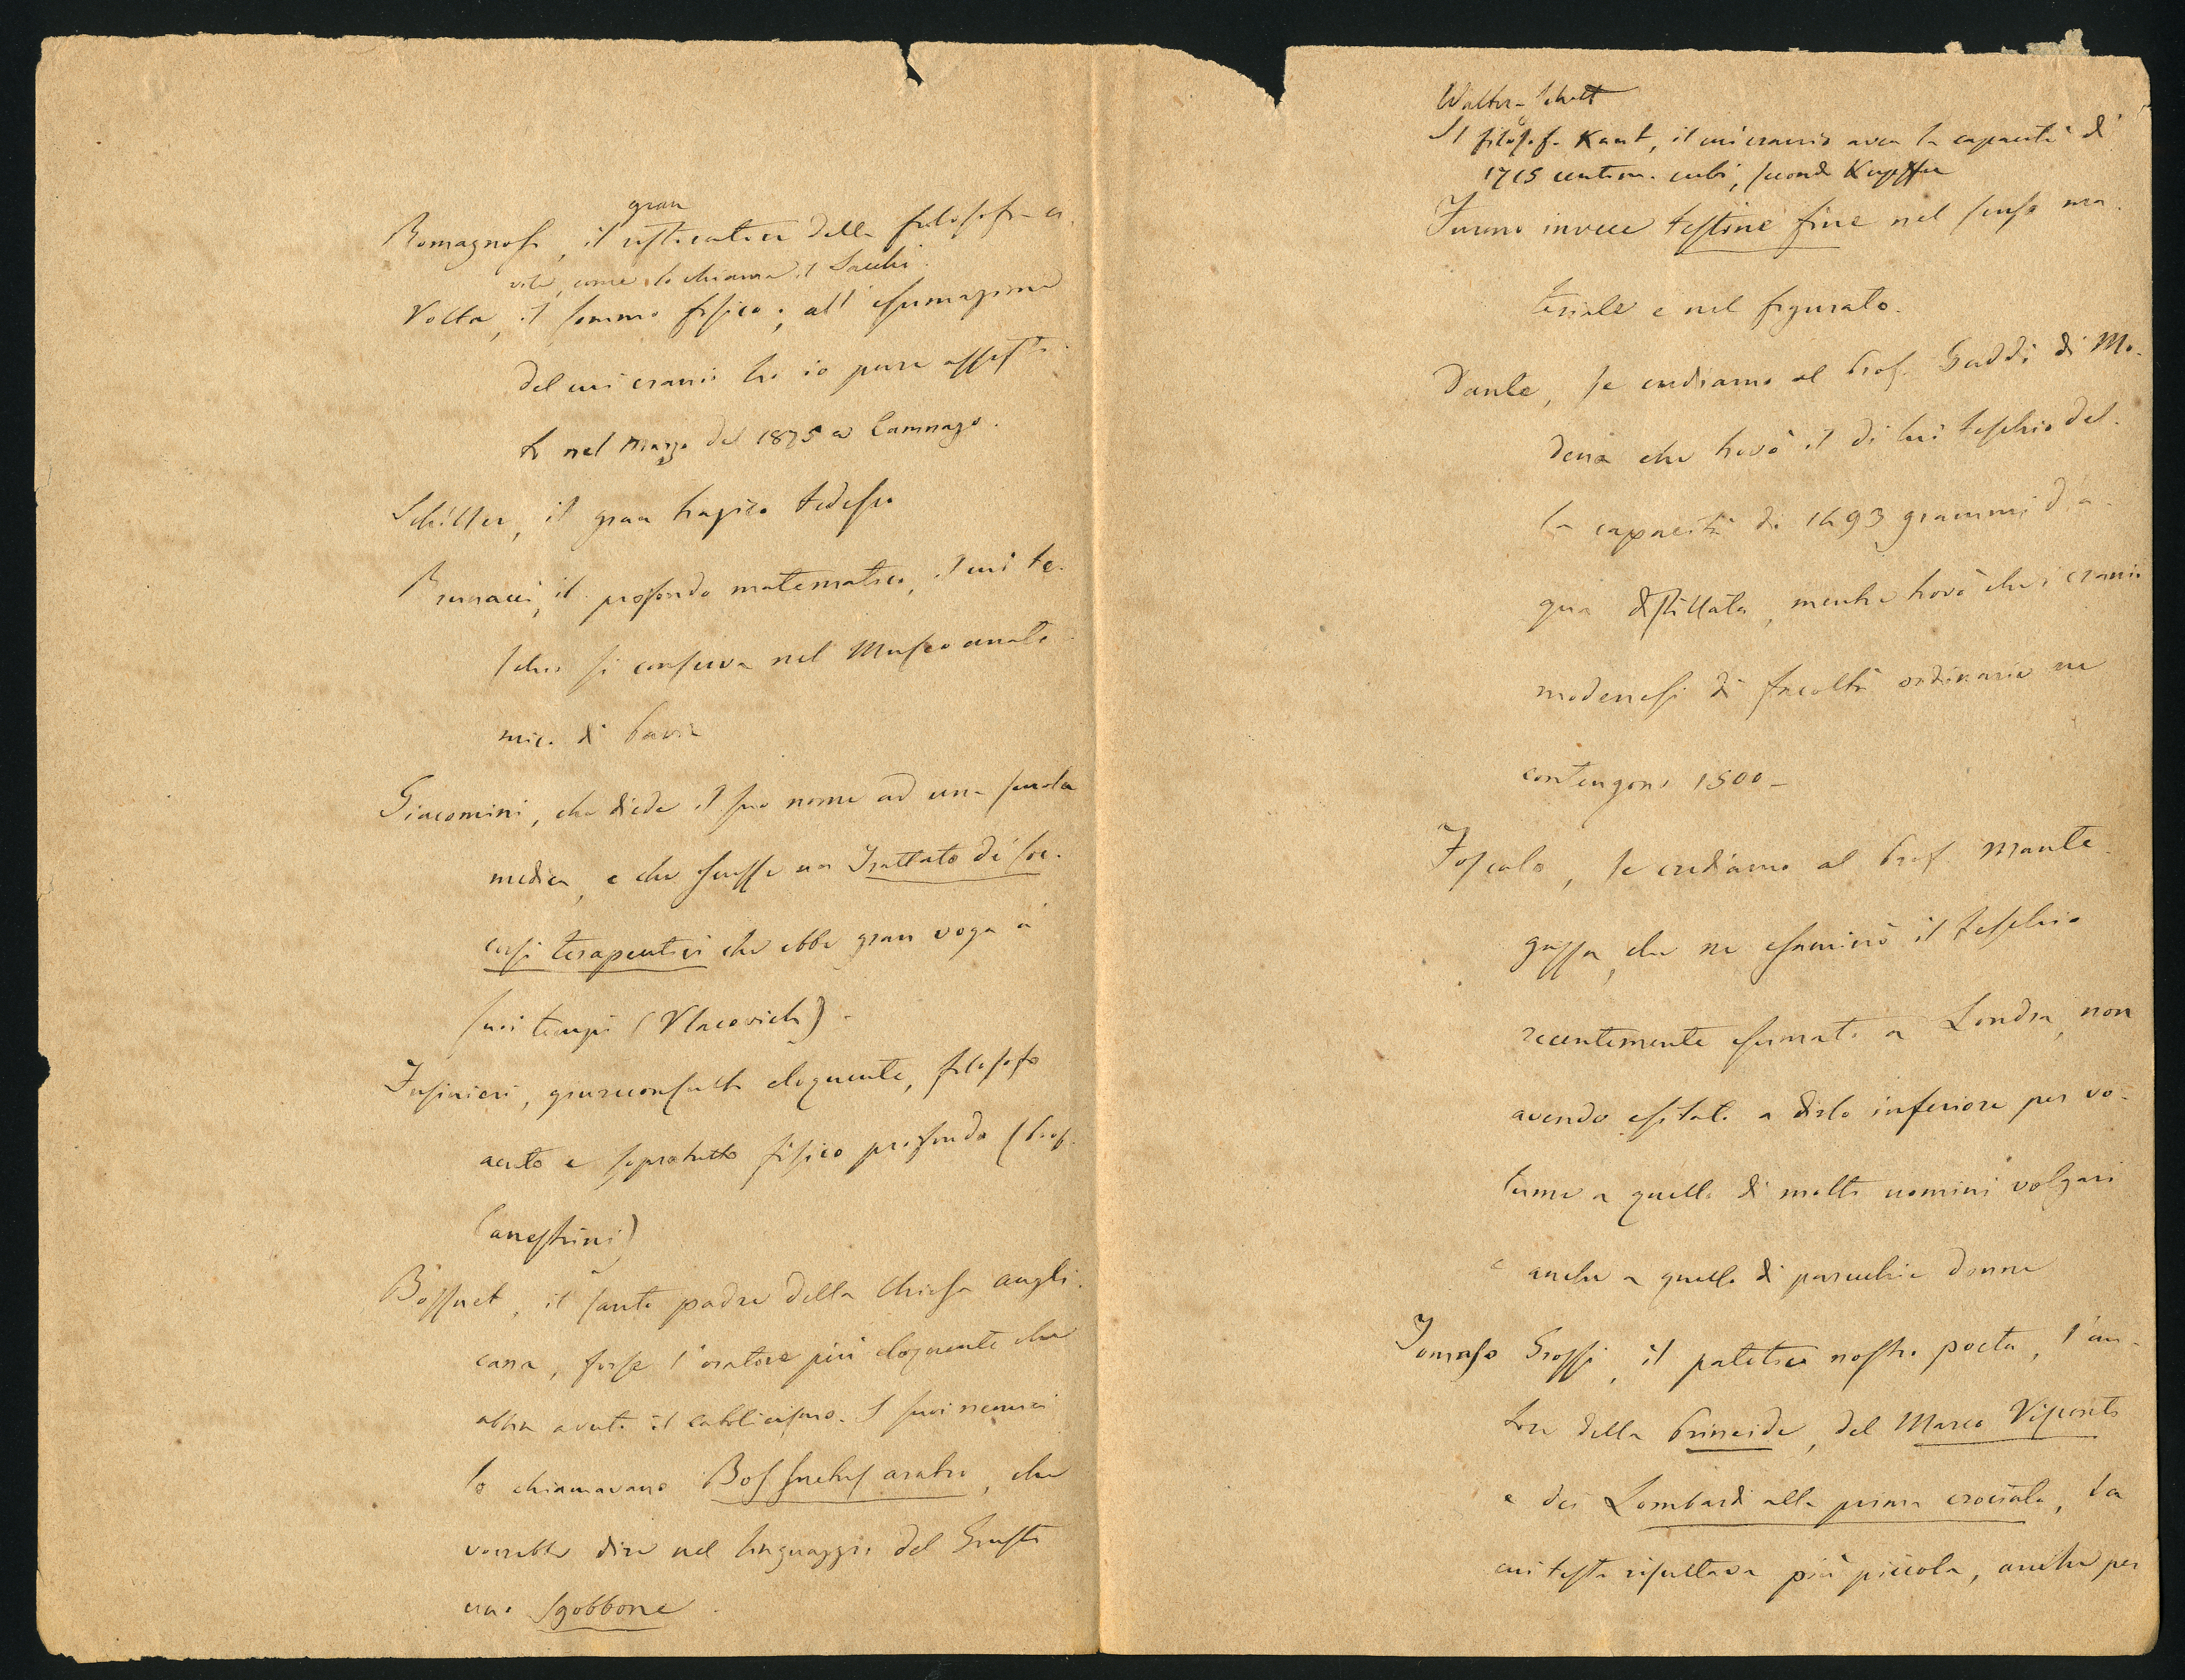 Romagnosi, il gran restauratore della filosofia ci-
vile, come lo chiama il Sacchi.
Volta, il sommo fisico; all'esumazione
del cui cranio ho io pure assisti-
to nel Marzo del 1875 a Camnago.
Schiller, il gran tragico tedesco
Brunacci, il profondo matematico, il cui te-
schio si conserva nel Museo anato-
mico di Pavia
Giacomini, che diede il suo nome ad una scuola
medica, e che scrisse un Trattato di soc-
corsi terapeutici che ebbe gran voga a'
suoi tempi (Vlacovich).
Fusinieri, giureconsulto eloquente, filosofo
acuto e sopratutto fisico profondo (Prof.
Canestrini)
Bossuet, il santo padre della Chiesa angli-
cana, forse l'oratore più eloquente che
abbia avuto il cattolicismo. I suoi nemici
lo chiamavano Bos suetus aratro, che
vorrebbe dire nel linguaggio del Giusti
uno sgobbone.
Walter-Schott
Il filosofo Kant, il cui cranio avea la capacità di
1715 centim. cubi, secondo Kupffer
Furono invece testine fine nel senso ma-
teriale e nel figurato.
Dante, se crediamo al Prof. Gaddi di Mo-
dena che trovò il di lui teschio del-
la capacità di 1493 grammi d'a-
qua distillata, mentre trovò che i cranii
modenesi di facoltà ordinarie ne
contengono 1500 –
Foscolo, se crediamo al Prof. Mante-
gazza, che ne esaminò il teschio
recentemente esumato a Londra, non
avendo esitato a dirlo inferiore per vo-
lume a quello di molti uomini volgari
e anche a quello di parecchie donne
Tomaso Grossi, il patetico nostro poeta, l'au-
tore della Prineide, del Marco Visconti
e dei Lombardi alla prima crociata, la
cui testa risultava più piccola, anche per